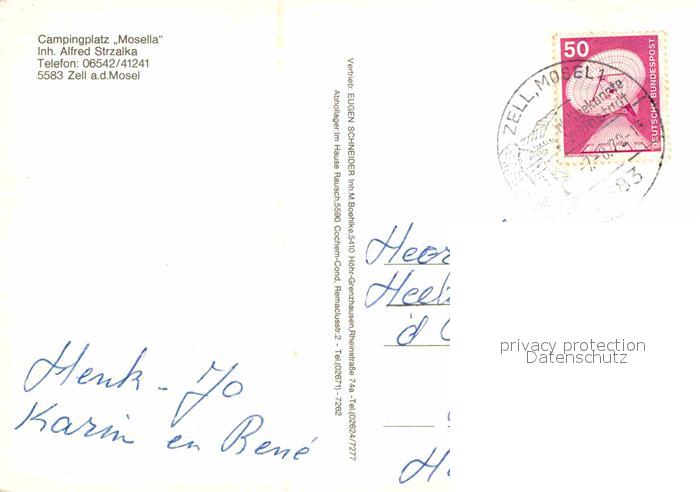 Campingplatz „Mosella“
Inh. Alfred Strzalka
Telefon: 06542/41241
5583 Zell a.d.Mosel
Vertrieb: EUGEN SCHNEIDER Inh.M.Boehlke,5410 Höhr-Grenzhausen,Rheinstraße 74a -Tel.(02624/7277
Abhollager:Im Hause Rausch,5590 Cochem-Cond, Remaclusstr.2 - Tel.(02671)-7262
50
DEUTSCHE BUNDESPOST
ZELL, MOSEL 1
83
Henk - Jo
Karin en René
privacy protection
Datenschutz